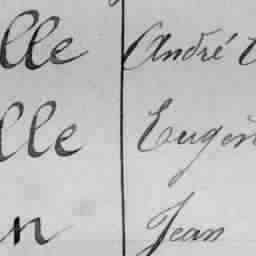 lle André
lle Eugèn
n Jean